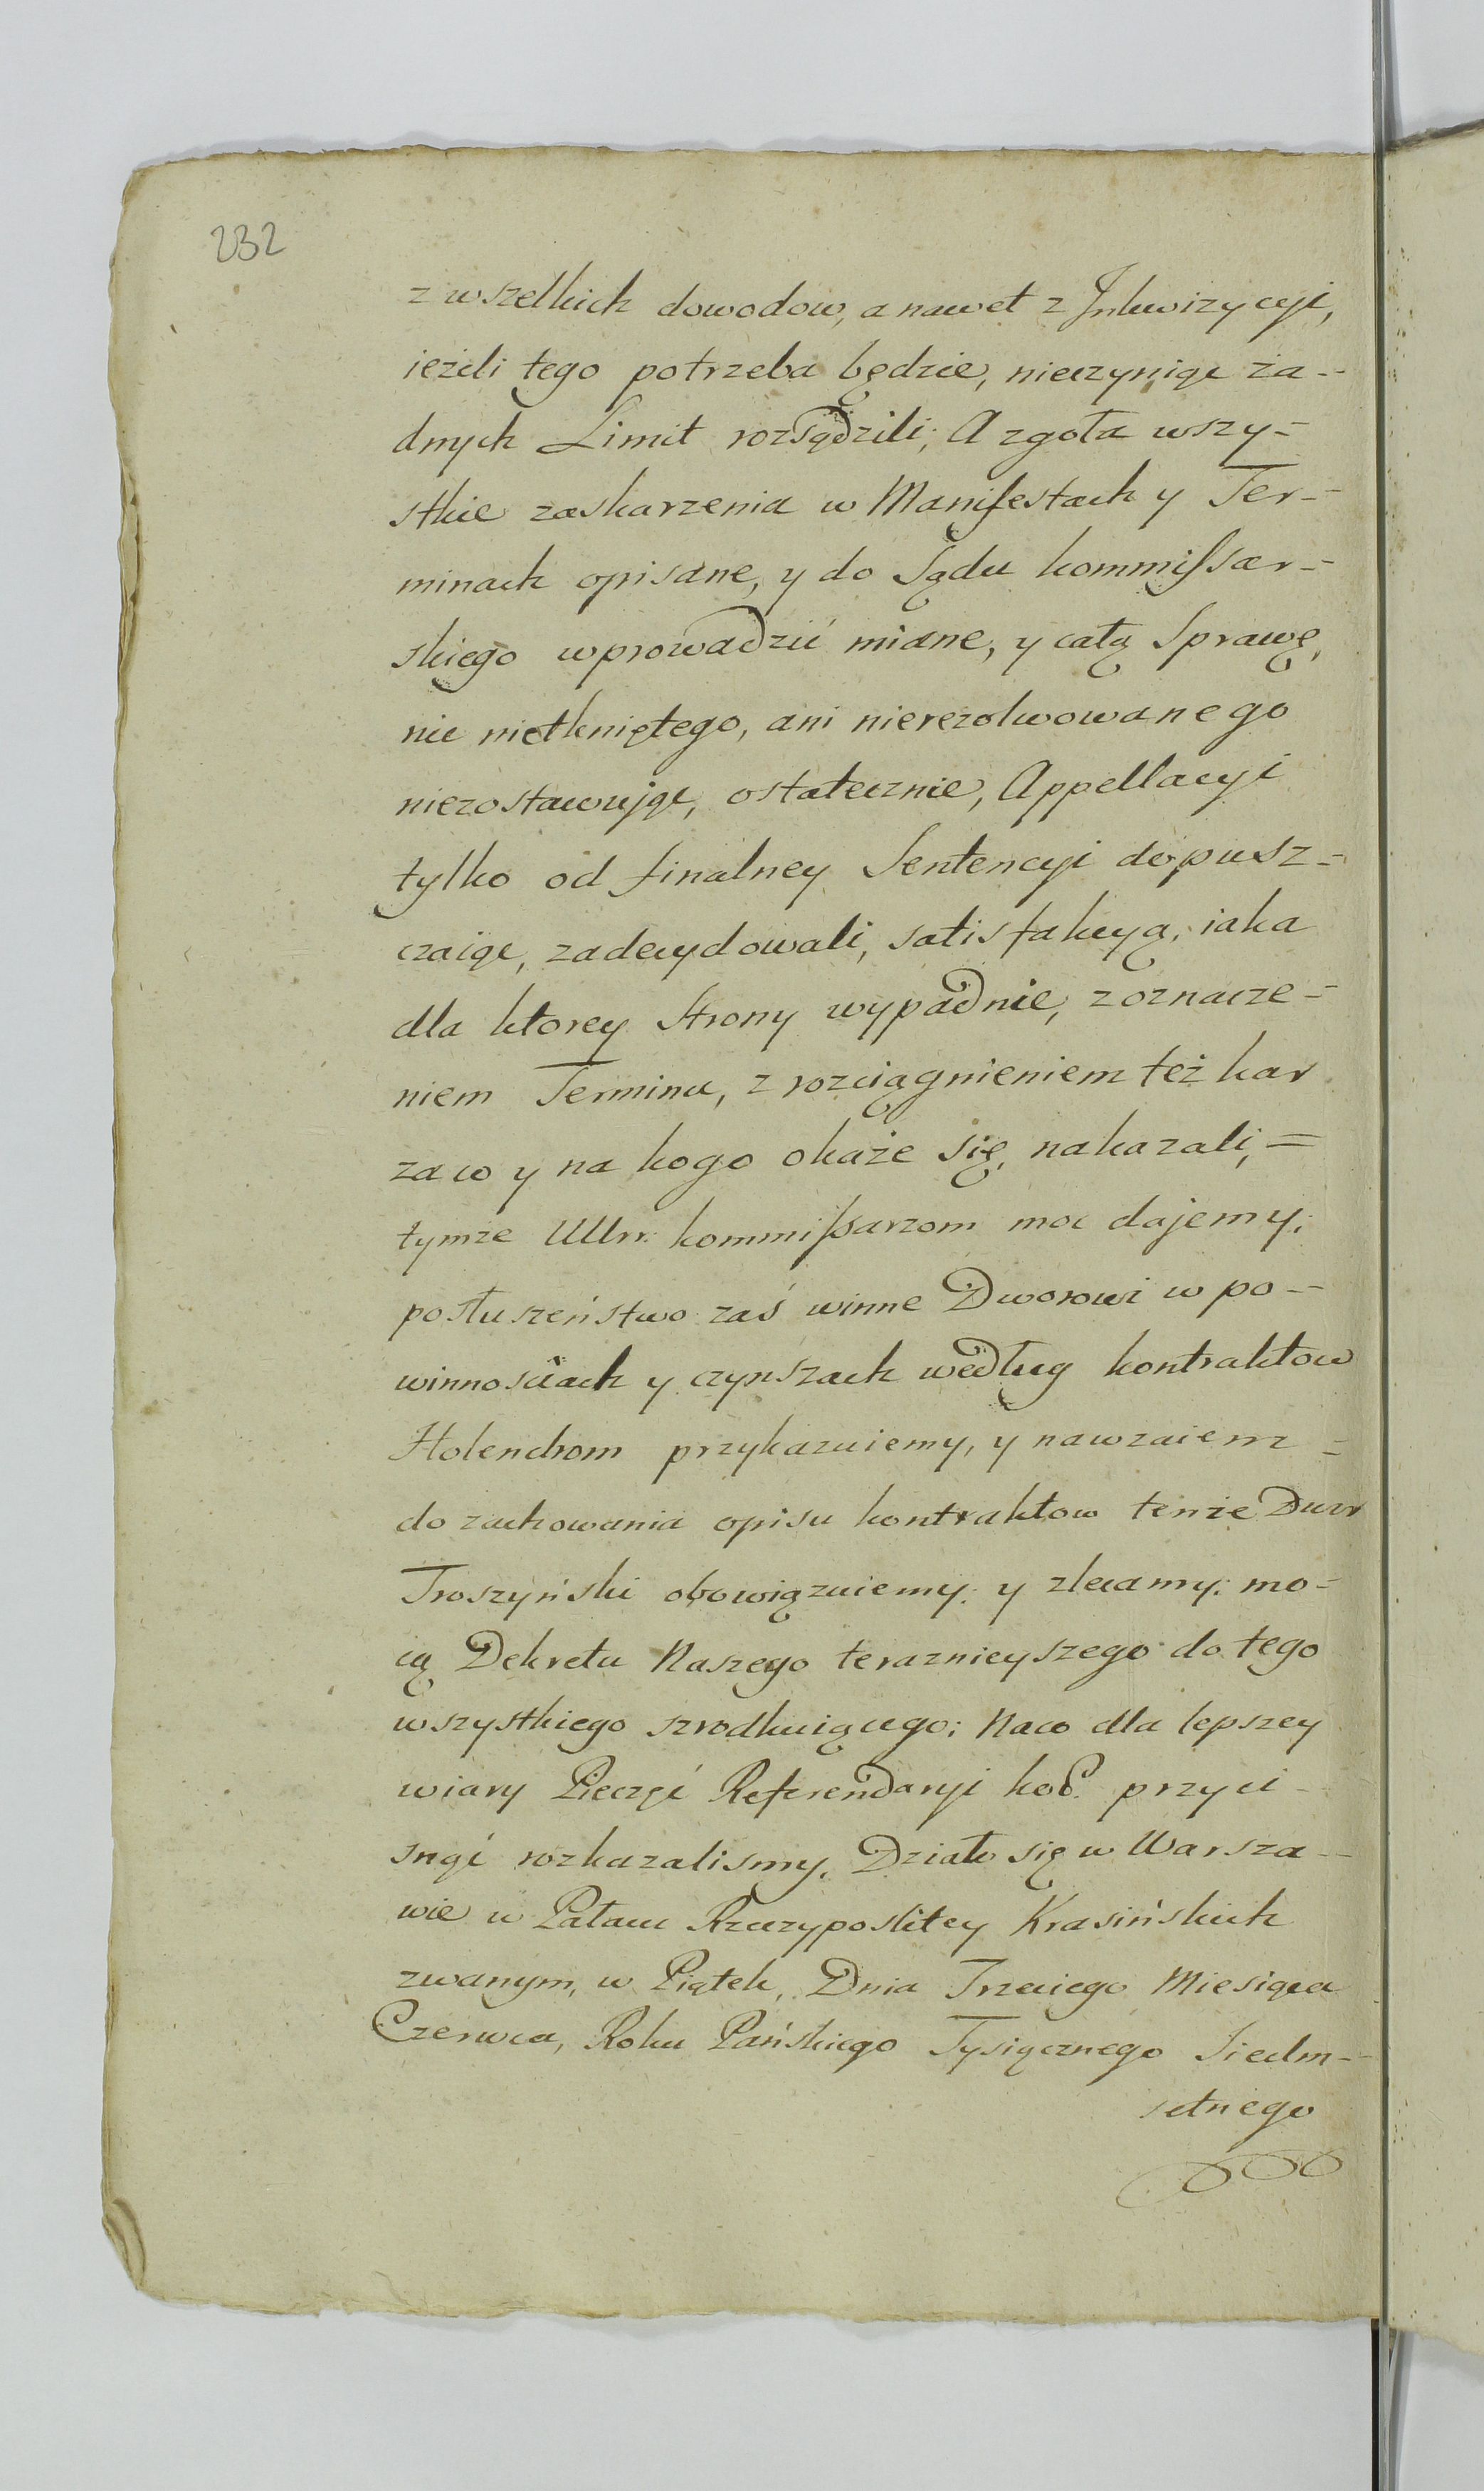 232
z wszelkich dowodow, a nawet z Jnkwizycyi,
ieżeli tego potrzeba będzie, nieczyniąc ża--
dnych Limit rozsądzili; A zgoła wszy=
stkie zaskarzenia w Manifestach y Ter--
minach opisane, y do Sądu kommissar--
skiego wprowadzić miane, y całą Sprawę,
nic nietkniętego, ani nierezolwowanego
niezostawując, ostatecznie, Appellacyi
tylko od finalney Sentencyi dopusz=
czaiąc, zadecydowali, satisfakcyą, iaka
dla ktorey Strony wypadnie, z oznacze=
niem Terminu, z rozciągnieniem też kar
za co y na kogo okaże się, nakazali, =
tymże Ullrr. kommissarzom moc dajemy;
posłuszeństwo zaś winne Dworowi w po--
winnościach y czynszach według kontraktow
Holendrom przykazuiemy, y nawzaiem =
do zachowania opisu kontraktow tenże Dwor
Troszyński obowiązuiemy, y zlecamy; mo=
cą Dekretu Naszego teraznieyszego do tego
wszystkiego szrodkuiącego; Naco dla lepszey
wiary Pieczęć Referendaryi koř. przyci-
snąć rozkazalismy. Działo się w Warsza--
wie w Pałacu Rzeczypospolitey Krasińskich
zwanym, w Piątek, Dnia Trzeciego Miesiąca
Czerwca, Roku Pańskiego Tysiącznego Siedm--
setnego